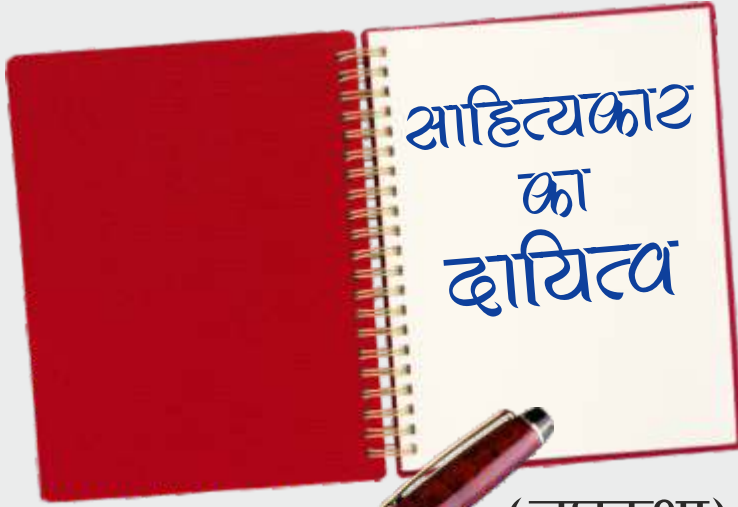 साहित्यकार
का
दायित्व